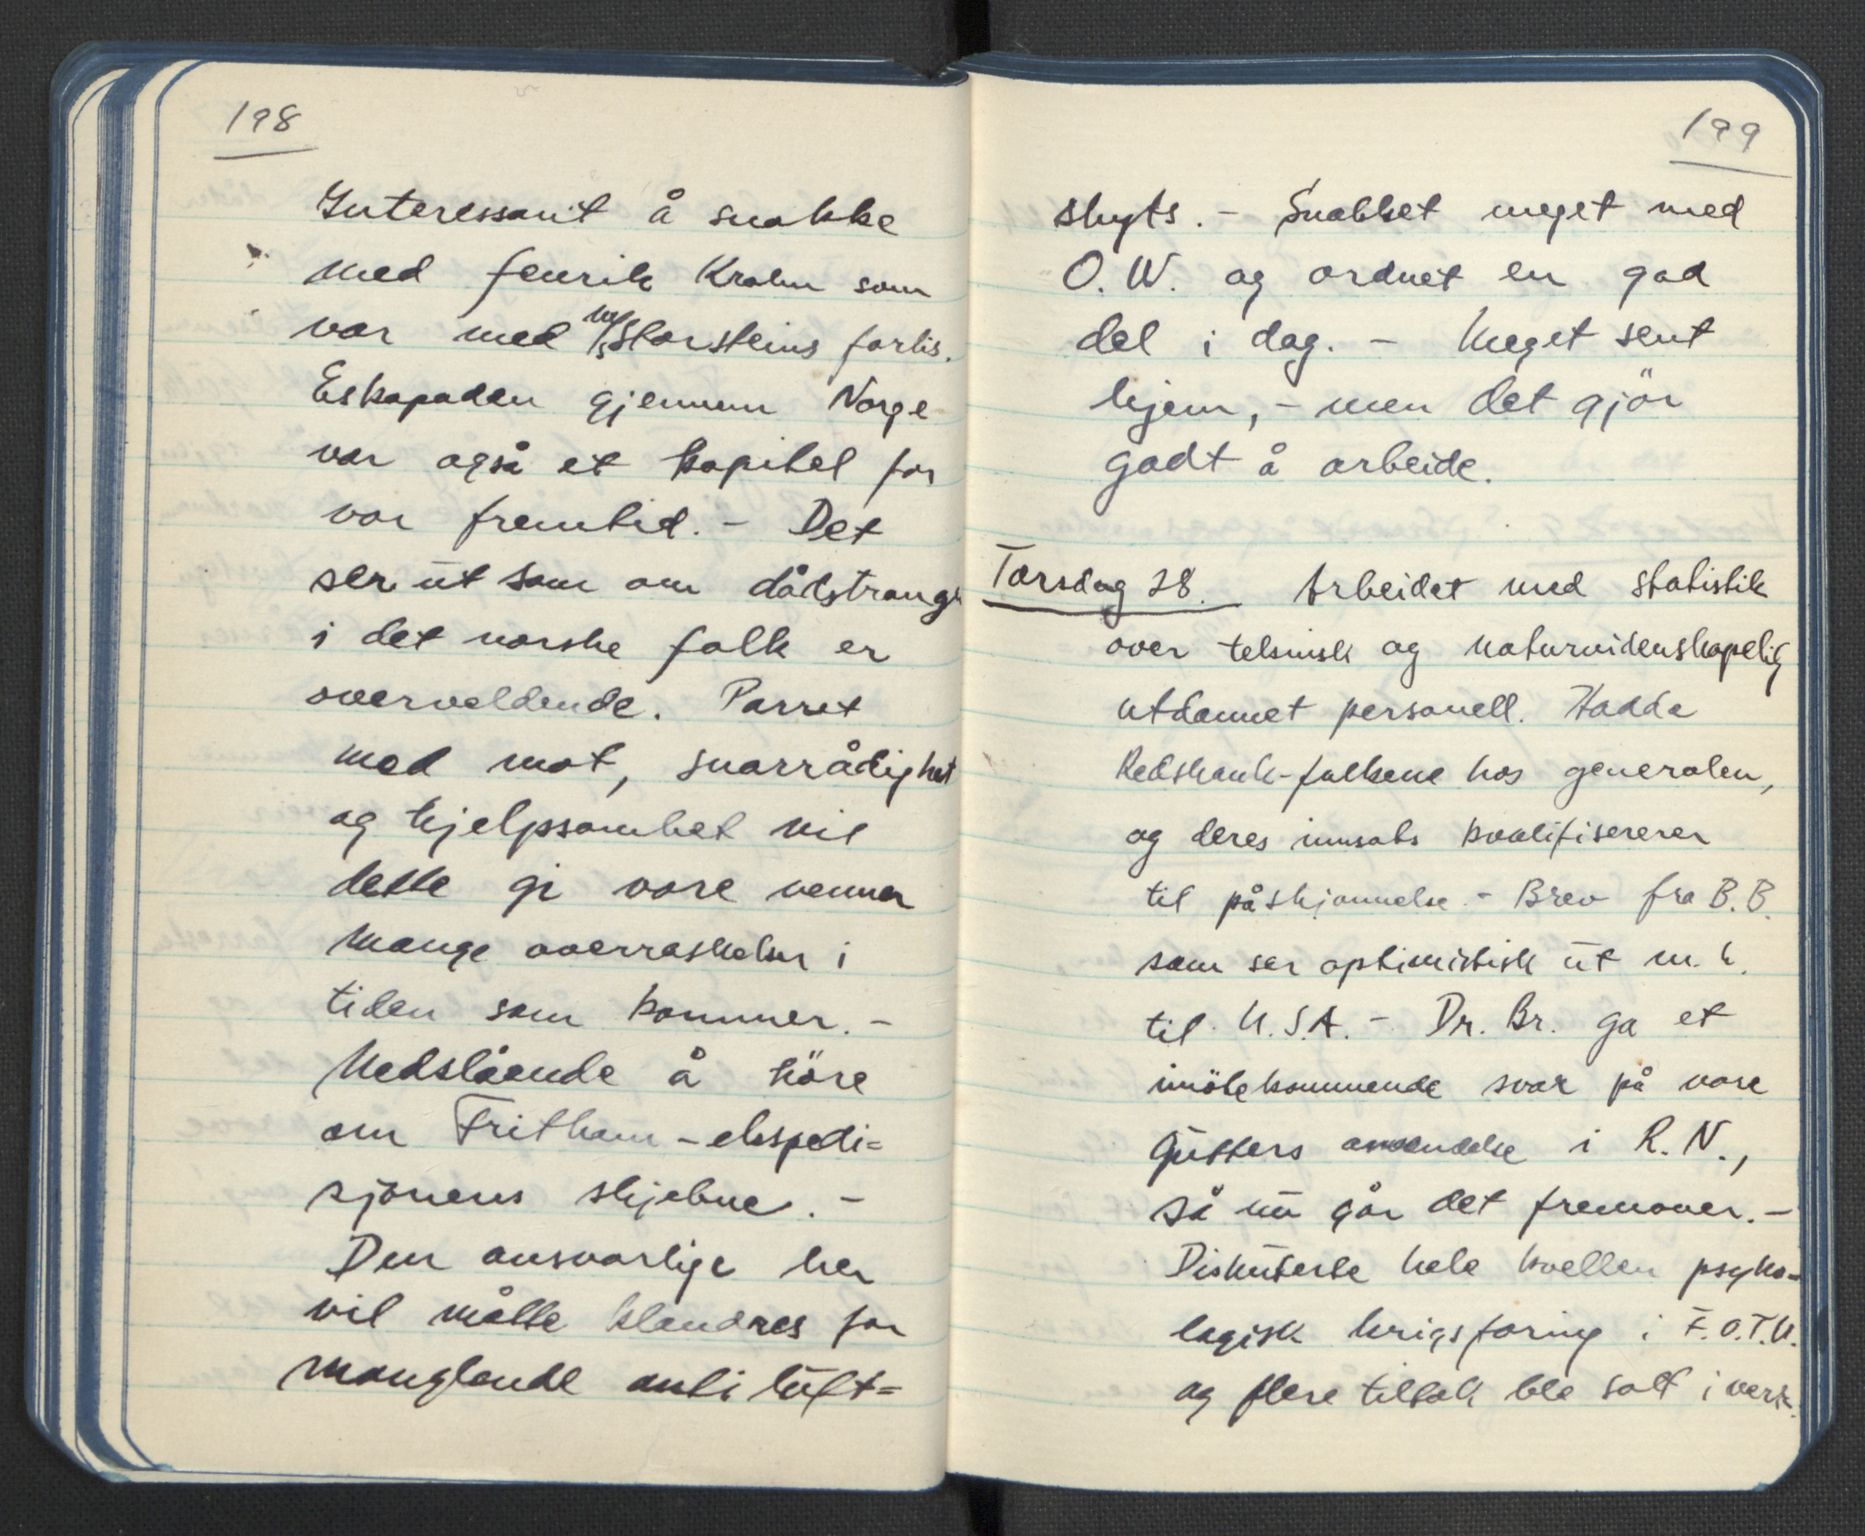 198
Interessant å snakke
med fenrik Krohn som
var med M/S Storsteins forlis.
Eskapaden gjennem Norge
var også et kapitel for
vor fremtid. - Det
ser ut som om dådstrang
i det norske folk er
overveldende. Parret
med mot, snarrådighet
og hjelpsomhet vil
dette gi vore venner
mange overraskelser i
tiden som kommer. -
Nedslående å höre
om Fritham-ekspedi=
sjonens skjebne. -
Den ansvarlige her
vil måtte klandres for
manglende anti luft=
199
skyts. - Snakket meget med
O. W. og ordnet en god
del i dag. - Meget sent
hjem, - men det gjör
godt å arbeide.
Torsdag 28. Arbeidet med statistik
over teknisk og naturvidenskapelig
utdannet personell. Hadde
Redshank-folkene hos generalen,
og deres innsats kvalifiserer
til påskjønnelse. - Brev fra B. B.
som ser optimistisk ut m. h.
til U.S.A. - Dr. Br. ga et
imötekommende svar på vore
gutters anvendelse i R. N.,
så nu går det fremover. -
Diskuterte hele kvelden psyko=
logisk krigsføring i F.O.T.U.
og flere tiltak ble satt i verk.